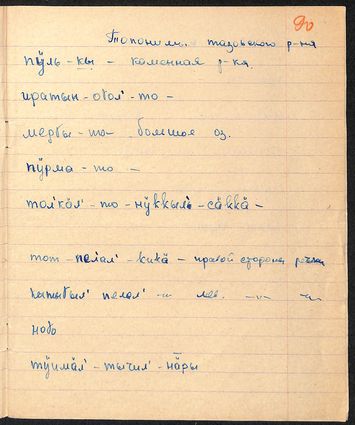 90
Топонимы тазовского р-на
пӱль-кы - каменная р-ка
иратын-оӄол'-то -
мерӄы-то- большое оз.
пӱрма-то -
толкӧл'-то-нӱккыль-сӓккӓ-
тот-пеlӓл'-кикӓ- правой стороны речка
пелал' -"- лев. -"- -"-
тӱймӓл'-тычил'-нӓры